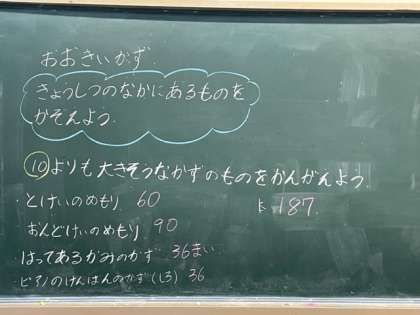 おおきいかず.
きょうしつのなかにあるものを
かぞえよう.
⑩よりも大きそうなかずのものをかんがえよう.
・とけいのめもり 60
187.
・おんどけいのめもり 90
・はってあるかみのかず 36まい
・ピアノのけんばんのかず(しろ) 36